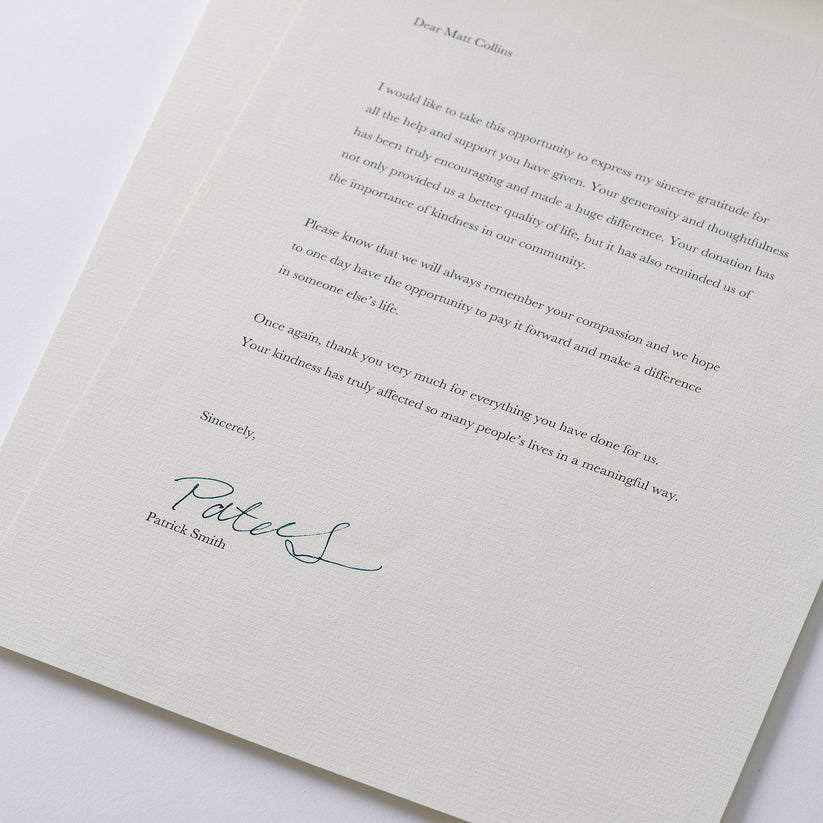 Dear Matt Collins
I would like to take this opportunity to express my sincere gratitude for
all the help and support you have given. Your generosity and thoughtfulness
has been truly encouraging and made a huge difference. Your donation has
not only provided us a better quality of life, but it has also reminded us of
the importance of kindness in our community.
Please know that we will always remember your compassion and we hope
to one day have the opportunity to pay it forward and make a difference
in someone else’s life.
Once again, thank you very much for everything you have done for us.
Your kindness has truly affected so many people’s lives in a meaningful way.
Sincerely,
Patrick Smith